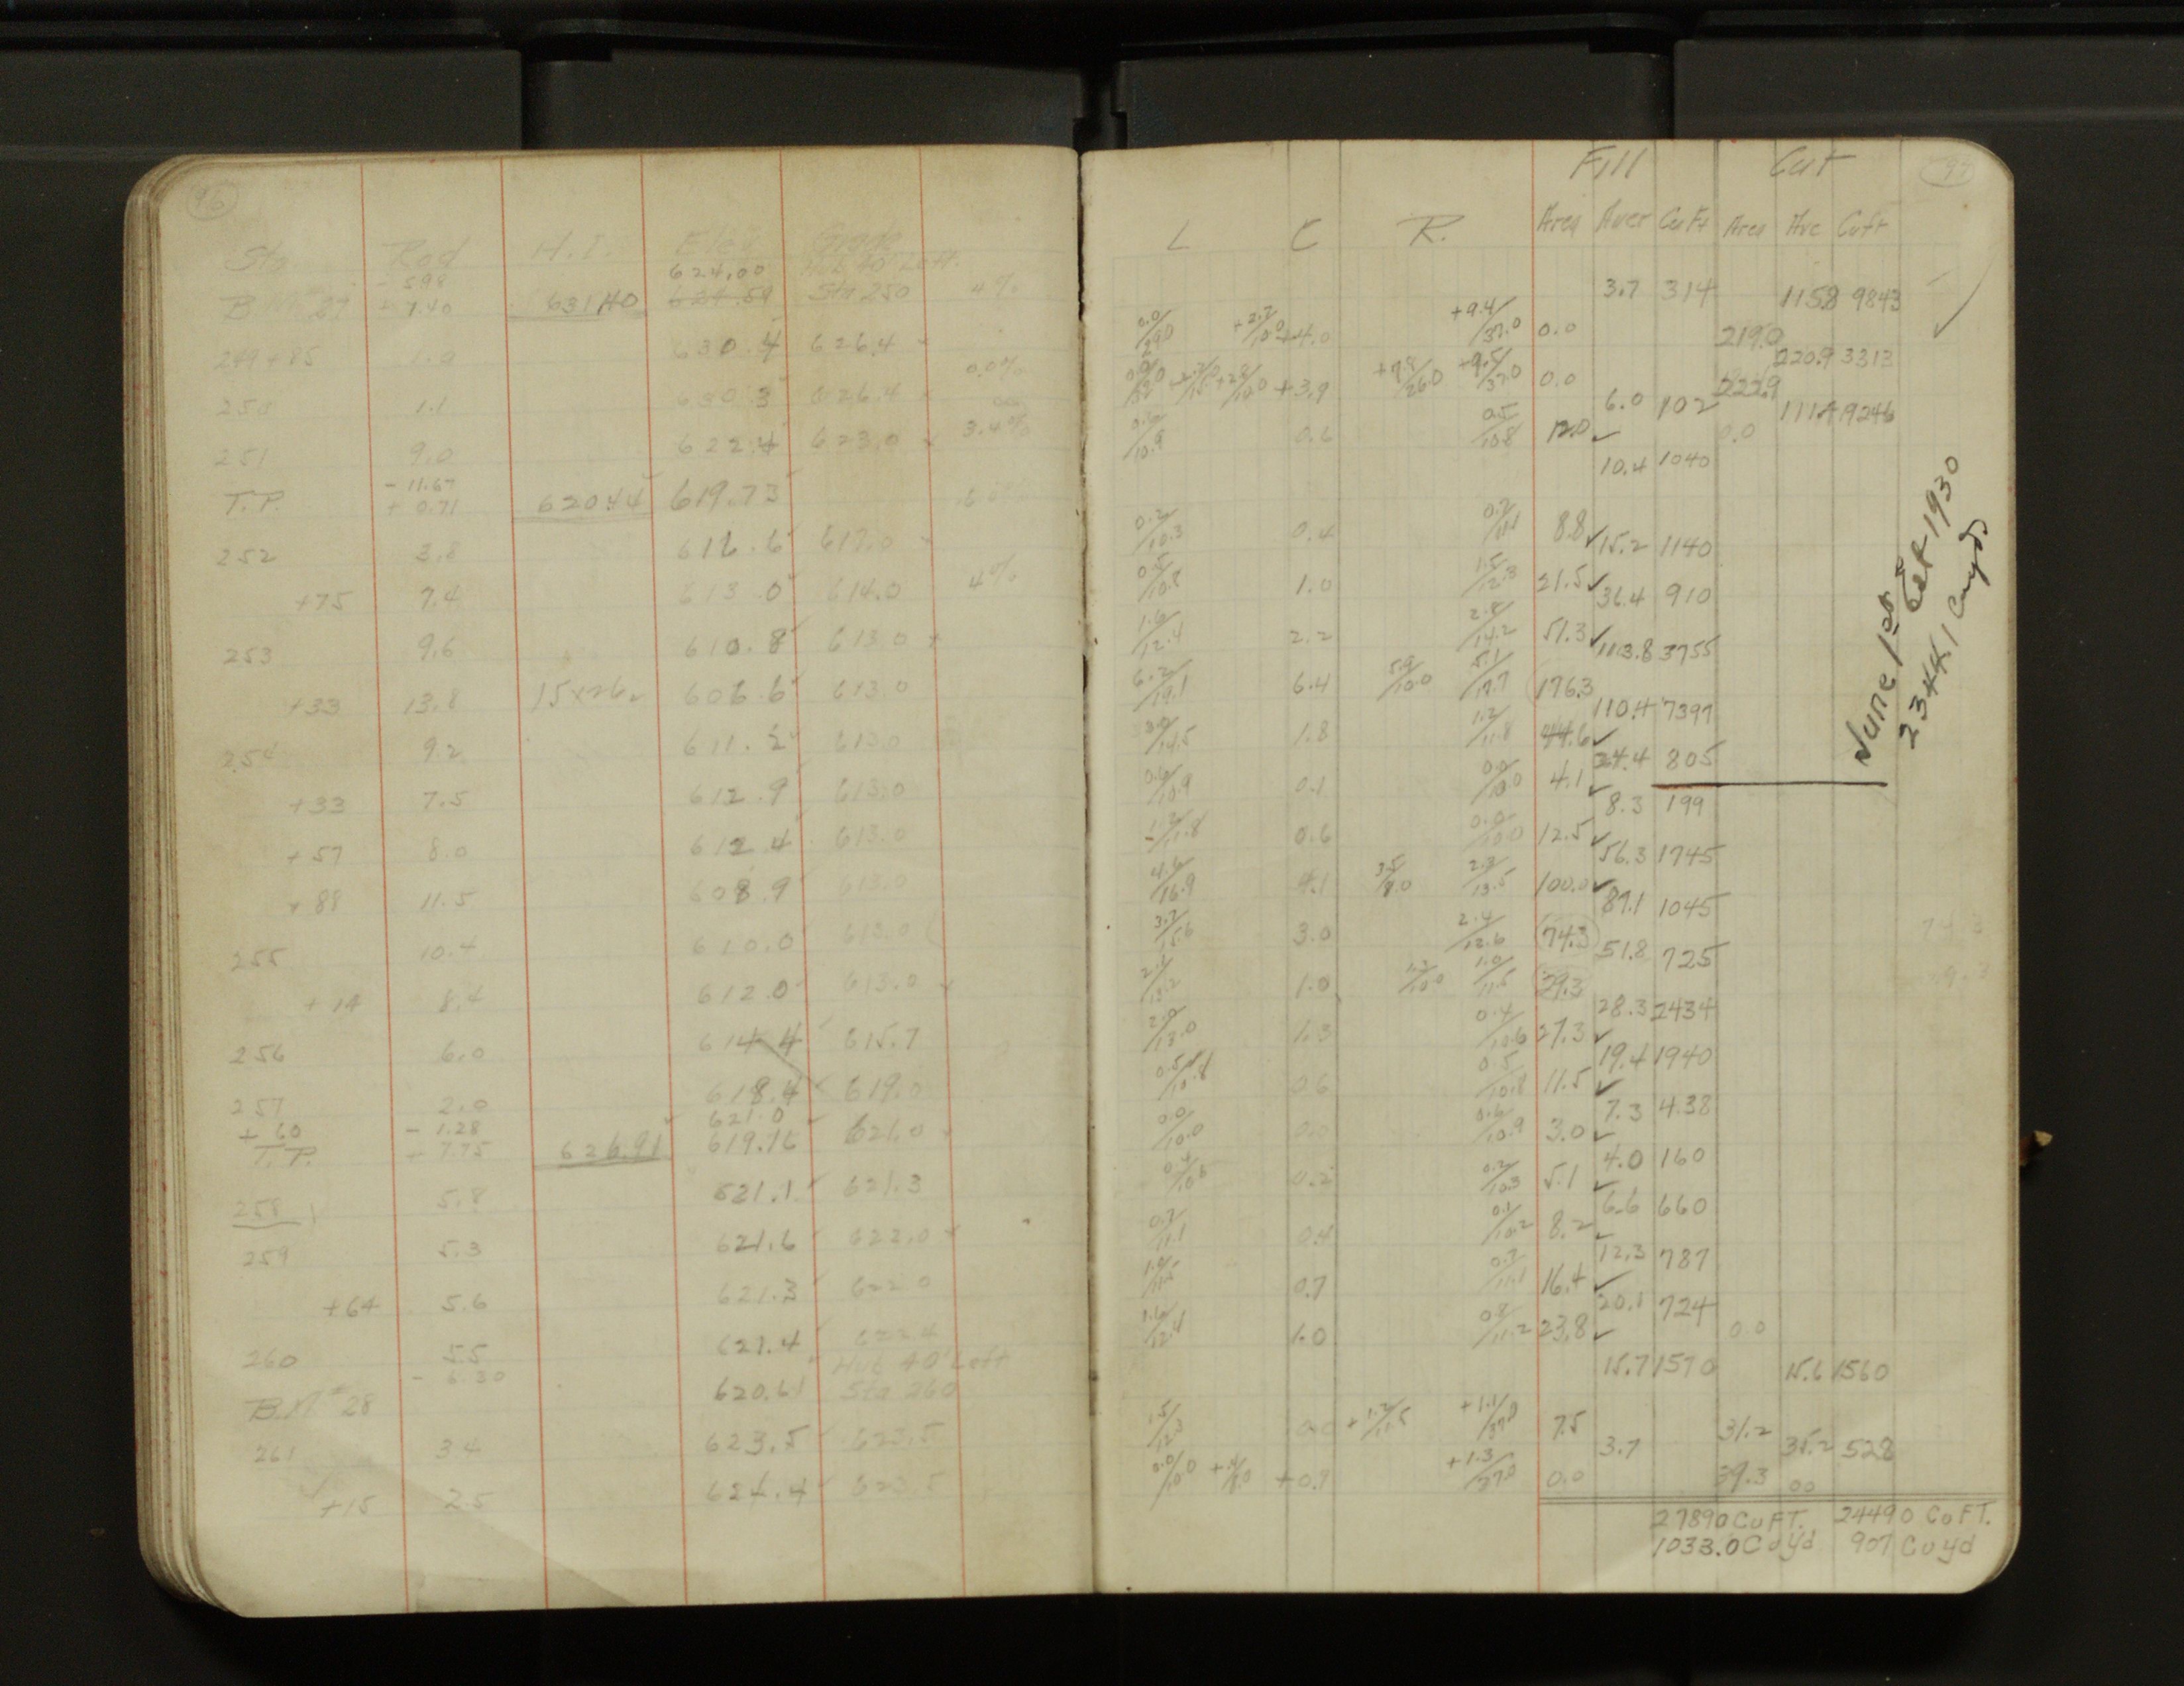 96
Sta Rod H.I. Elev. Grade
- 5.98 624.00 Hub 40' Left
B.M. 27 + 7.40 631.40 624.59 Sta 250 4%
249+85 1.0 630.4 626.4
0.0%
250 1.1 630.3 626.4
251 9.0 622.4 623.0 3.4%
- 11.67
T.P. + 0.71 620.44 619.73
252 3.8 616.6
+75 7.4 613.0 614.0 4%
253 9.6 610.8 613.0
+33 13.8 606.6 613.0
254 9.2 611.2 613.0
+33 7.5 612.9 613.0
+57 8.0 612.4 613.0
+88 11.5 608.9 613.0
255 10.4 610.0 613.0
+14 8.4 612.0 613.0
256 6.0 614.4 615.7
257 2.0 618.4 619.0
+60 - 1.28 621.0
T.P. + 7.75 626.91 619.16 621.0
258 5.8 621.1 621.3
259 5.3 621.6 622.0
+64 5.6 621.3 622.0
260 5.5 621.4 622.4
- 6.30 Hub 40' Left
B.M. 28 620.61 Sta 260
261 3.4 623.5 623.5
+15 2.5 624.4 623.5
97
Fill Cut
L C R. Area Aver Cu Ft Area Ave Cuft
3.7 314 115.8 9843
0.0/29.0 +2.7/10.0 +4.0 +9.4/37.0 0.0 219.0
220.9 3313
+3.9 +7.8/26.0 +9.5/37.0 0.0 222.9
6.0 102 111.4 9246
0.6/10.9 0.6 0.5/10.8 12.0 0.0
10.4 1040
0.2/10.3 0.4 0.7/11.1 8.8
15.2 1140
0.5/10.8 1.0 1.5/12.3 21.5
36.4 910
1.6/12.4 2.2 2.8/14.2 51.3
113.8 3755
6.2/19.1 6.4 5.9/10.0 5.1/17.7 176.3
110.4 7397
3.0/14.5 1.8 1.2/11.8 44.6
24.4 805
0.6/10.9 0.1 0.0/10.0 4.1
8.3 199
1.2/11.8 0.6 0.0/10.0 12.5
56.3 1745
4.6/16.9 4.1 3.5/8.0 2.3/13.5 100.0
87.1 1045
3.7/15.6 3.0 2.4/13.6 74.3
51.8 725
2.1/13.2 1.0 1.2/10.0 1.0/11.5 29.3
28.3 2434
2.0/13.0 1.3 0.4/10.6 27.3
19.4 1940
0.5/10.8 0.6 0.5/10.8 11.5
7.3 438
0.0/10.0 0.0 0.6/10.9 3.0
4.0 160
0.4/10.6 0.2 0.2/10.3 5.1
6.6 660
0.7/11.1 0.4 0.1/10.2 8.2
12.3 787
0.7 0.7/11.1 16.4
20.1 724
1.6/12.4 1.0 0.8/11.2 23.8 0.0
15.7 1570 15.6 1560
1.5/12.3 0.0 +1.1/37.0 7.5 31.2
3.7 35.2 528
0.0/10.0 +0.9 +1.3/37.0 0.0 39.3 00
27890 CuFT. 24490 CuFT.
1033.0 Cu yd 907 Cu yd
June 1st Est 1930
2344.1 Cu yds